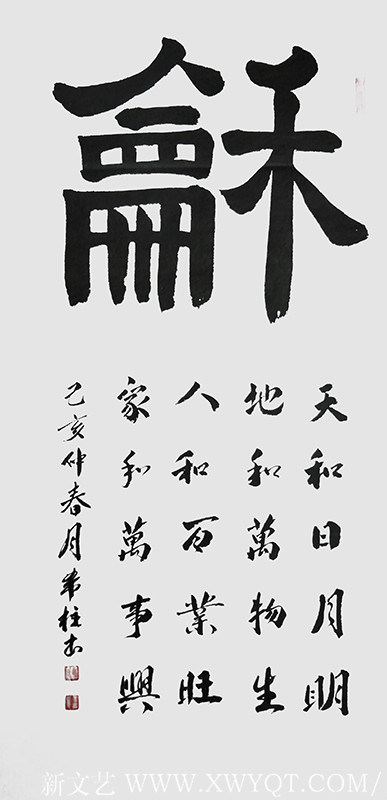 龢
天和日月明
地和萬物生
人和百業旺
家和萬事興
己亥仲春月 柱书
新文艺 WWW.XWYQT.COM/